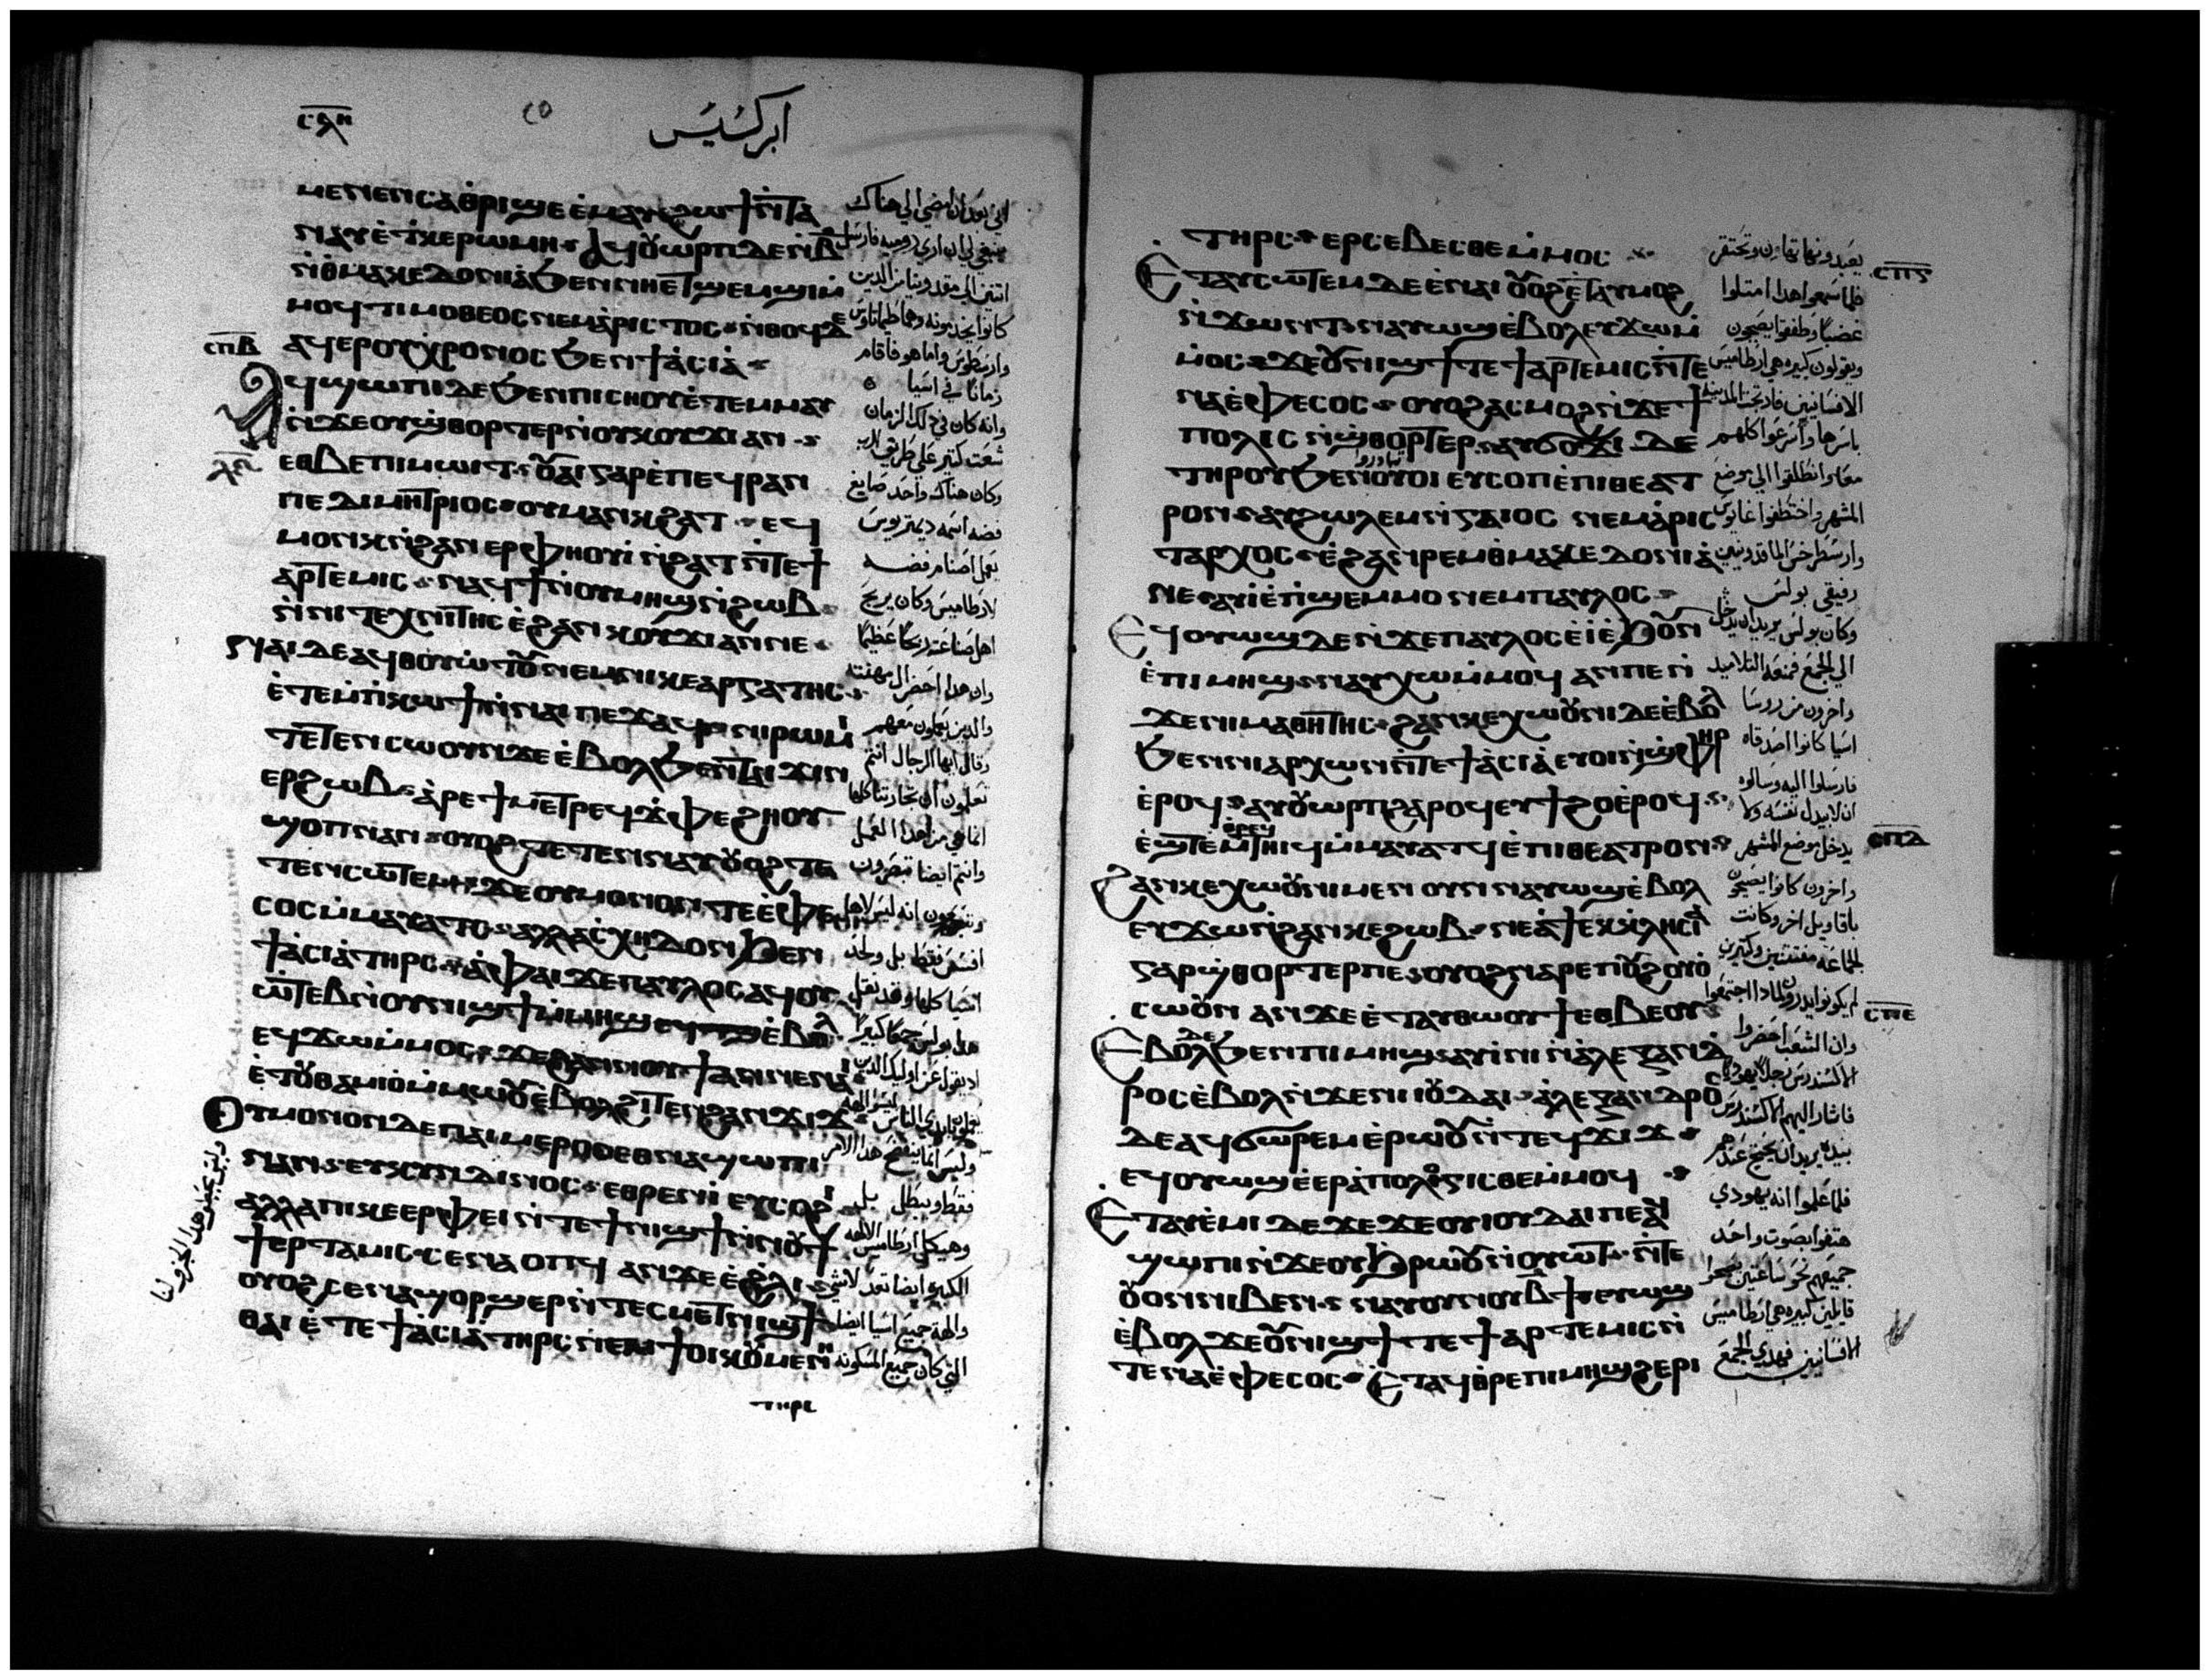 ⲥⲗⲏ
ابركسيس
ⲙⲉⲛⲉⲛⲥⲁⲑⲣⲓϣⲉ ⲉ̀ⲙⲁⲩ ϩⲱϯ ⲛ̀ⲧⲁ
ⲛⲁⲩ ⲉ̀ϯⲕⲉⲣⲱⲙⲏ ⲁϥⲟⲩⲱⲣⲡ ⲇⲉ ⲛ̀ⲃ̅
ⲛ̀ⲑⲙⲁⲕⲉⲇⲟⲛⲓⲁ̀ ϧⲉⲛ ⲛⲏⲉⲧϣⲉⲙϣⲓ ⲙ̀
ⲙⲟϥ ⲧⲓⲙⲟⲑⲉⲟⲥ ⲛⲉⲙ ⲁ̀ⲣⲓⲥⲧⲟⲥ ⲛ̀ⲑⲟϥ ⲇⲉ
ⲁϥⲉⲣⲟⲩⲭⲣⲟⲛⲟⲥ ϧⲉⲛ ϯⲁ̀ⲥⲓⲁ̀
ⲥⲡⲃ
ⲁϥϣⲱⲡⲓ ⲇⲉ ϧⲉⲛ ⲡⲓⲥⲏⲟⲩ ⲉ̀ⲧⲉⲙⲙⲁⲩ
ⲛ̀ϫⲉ ⲟⲩϣⲑⲟⲣⲧⲉⲣ ⲛ̀ⲟⲩⲕⲟⲩϫⲓ ⲁⲛ
ⲉⲑⲃⲉ ⲡⲓⲙⲱⲓⲧ ⲟⲩⲁⲓ ⲅⲁⲣ ⲉ̀ⲡⲉϥⲣⲁⲛ
ⲡⲉ ⲇⲓⲙⲏⲧⲣⲓⲟⲥ ⲟⲩⲙⲁⲛⲕϩⲁⲧ ⲉϥ
ⲙⲟⲛⲕ ⲛ̀ϩⲁⲛⲉⲣⲫⲏⲟⲩⲓ̀ ⲛ̀ϩⲁⲧ ⲛ̀ⲧⲉ ϯ
ⲁⲣⲧⲉⲙⲓⲥ ⲛⲁϥϯ ⲛ̀ⲟⲩⲙⲏϣ ⲛ̀ϩⲱⲃ
ⲛ̀ⲛⲓⲧⲉⲭⲛⲓⲧⲏⲥ ⲉ̀ϩⲁⲛⲕⲟⲩϫⲓ ⲁⲛ ⲛⲉ
ⲫⲁⲓ ⲇⲉ ⲁϥⲑⲟⲩⲱⲧⲟⲩ ⲛⲉⲙ ⲛⲓⲕⲉⲁⲣⲅⲁⲧⲏⲥ
ⲉ̀ⲧⲉⲙⲡⲓⲕⲱϯ ⲛ̀ⲛⲁⲓ ⲡⲉϫⲁϥ ⲛⲓⲣⲱⲙⲓ
ⲧⲉⲧⲉⲛⲥⲱⲟⲩⲛ ϫⲉ ⲉ̀ⲃⲟⲗ ϧⲉⲛ ⲡⲁⲓ ϫⲓⲛ
ⲉⲣϩⲱⲃ ⲁ̀ⲣⲉ ϯⲙⲉⲧⲣⲉϥϫⲫⲉϩⲛⲟⲩ
ϣⲟⲡ ⲛⲁⲛ ⲟⲩⲟϩ ⲧⲉⲧⲉⲛⲛⲁⲩ ⲟⲩⲟϩ ⲧⲉ
ⲧⲉⲛⲥⲱⲧⲉⲙ ϫⲉ ⲟⲩⲙⲟⲛⲟⲛ ⲧⲉ ⲉ̀ⲫⲉ
ⲥⲟⲥ ⲙ̀ⲙⲁⲩⲁⲧⲥ ⲁⲗⲗⲁ ⲥⲭⲏⲇⲟⲛ ϧⲉⲛ
ϯⲁ̀ⲥⲓⲁ̀ ⲧⲏⲣⲥ ⲁ̀ ⲫⲁⲓ ϫⲉ ⲡⲁⲩⲗⲟⲥ ⲁϥⲟⲩ
ⲱⲧⲉⲃ ⲛ̀ⲟⲩⲛⲓϣϯ ⲙ̀ⲙⲏϣ ⲉ̀ⲃⲟⲗ
ⲉϥϫⲱ ⲙ̀ⲙⲟⲥ ϫⲉ ϩⲁⲛⲛⲟⲩϯ ⲁⲛ ⲛⲉ ⲛⲏ
ⲉ̀ⲧⲟⲩⲑⲁⲙⲓⲟ̀ ⲙ̀ⲙⲱⲟⲩ ⲉ̀ⲃⲟⲗ ϩⲓⲧⲉⲛ ϩⲁⲛϫⲓϫ
ⲟⲩⲙⲟⲛⲟⲛ ⲇⲉ ⲡⲁⲓⲙⲉⲣⲟⲥ ⲉⲑⲛⲁϣⲱⲡⲓ
ⲛⲁⲛ ⲉⲩⲕⲩⲛⲇⲓⲛⲟⲥ ⲉⲑⲣⲉⲛⲓ̀ ⲉⲩⲥⲟϩⲓ
ⲁⲗⲗⲁ ⲡⲓⲕⲉⲉⲣⲫⲉⲓ ⲛ̀ⲧⲉ ϯⲛⲓϣϯ ⲛ̀ⲛⲟⲩϯ
ϯⲉⲣⲧⲁⲙⲓⲥ ⲥⲉⲛⲁⲟⲡϥ ⲁⲛ ϫⲉ ⲉ̀ϩⲗⲓ
ⲟⲩⲟϩ ⲥⲉⲛⲁϣⲟⲣϣⲉⲣ ⲛ̀ⲧⲉⲥⲙⲉⲧⲛⲓϣϯ
ⲑⲁⲓ ⲉ̀ⲧⲉ ϯⲁ̀ⲥⲓⲁ̀ ⲧⲏⲣⲥ ⲛⲉⲙ ϯⲟⲓⲕⲟⲩⲙⲉⲛⲏ
ⲧⲏⲣⲥ
اني بعد ان امضي الي هناك
ينبغي لي ان اري رومية فارسل
اتنين الي مقدونيا من الدين
كانوا يخدمونه وهما طيماتاوس
وارسطوس واما هو فاقام
زمانا في اسيا
وانه كان في ذلك الزمان
شغب كتير علي طريق الرب
وكان هناك واحد صايغ
فضه اسمه ديمتريوس
يعمل اصنام فضه
لارطاميس وكان يربح
اهل صناعته ربحا عظيما
وان هدا احضر ال مهنته
والدين يعملون معهم
وقال ايها الرجال انتم
تعلمون ان تجارتنا كلها
انما هي من هدا العمل
وانتم ايضا تبصرون
وتسمعون انه ليس لاهل
افسس فقط بل وجل
اسيا كلها وقد نقل
هدا بولس جمعا كبيرا
اد يقول عن اوليك الدين
وليس انما يفتضح هدا الامر
فقط ويبطل بل
وهيكل ارطاميس الالهه
الكبيره ايضا تعد لا شي
والهة جميع اسيا ايضا
التي كان جميع المسكونه
ⲧⲏⲣⲥ ⲉⲣⲥⲉⲃⲉⲥⲑⲉ ⲙ̀ⲙⲟⲥ
ⲥⲡⲅ
ⲉⲧⲁⲩⲥⲱⲧⲉⲙ ⲇⲉ ⲉ̀ⲛⲁⲓ ⲟⲩⲟϩ ⲉ̀ⲧⲁⲩⲙⲟϩ
ⲛ̀ϫⲱⲛⲧ ⲛⲁⲩⲱϣ ⲉ̀ⲃⲟⲗ ⲉⲩϫⲱ ⲙ̀
ⲙⲟⲥ ϫⲉ ⲟⲩⲛⲓϣϯ ⲧⲉ ϯⲁⲣⲧⲉⲙⲓⲥ ⲛ̀ⲧⲉ
ⲛⲁ ⲉ̀ⲫⲉⲥⲟⲥ ⲟⲩⲟϩ ⲁⲥⲙⲟϩ ⲛ̀ϫⲉ ϯ
ⲡⲟⲗⲓⲥ ⲛ̀ϣⲑⲟⲣⲧⲉⲣ ⲁⲩϭⲟϫⲓ ⲇⲉ
ⲧⲏⲣⲟⲩ ϧⲉⲛ ⲟⲩⲟⲓ ⲉⲩⲥⲟⲡ ⲉ̀ⲡⲓⲑⲉⲁⲧ
ⲣⲟⲛ ⲁⲩϩⲱⲗⲉⲙ ⲛ̀ⲅⲁⲓⲟⲥ ⲛⲉⲙ ⲁ̀ⲣⲓⲥ
ⲧⲁⲣⲭⲟⲥ ⲉ̀ϩⲁⲛⲣⲉⲙⲑⲙⲁⲕⲉⲇⲟⲛⲓⲁ̀
ⲛⲉ ⲁⲩⲓ̀ ⲉ̀ⲡϣⲉⲙⲙⲟ ⲛⲉⲙ ⲡⲁⲩⲗⲟⲥ
ⲉϥⲟⲩⲱϣ ⲇⲉ ⲛ̀ϫⲉ ⲡⲁⲩⲗⲟⲥ ⲉ̀ⲓ̀ ⲉ̀ϧⲟⲩⲛ
ⲉ̀ⲡⲓⲙⲏϣ ⲛⲁⲩⲭⲱ ⲙ̀ⲙⲟϥ ⲁⲛ ⲡⲉ ⲛ̀
ϫⲉ ⲛⲓⲙⲁⲑⲏⲧⲏⲥ ϩⲁⲛⲕⲉⲭⲱⲟⲩⲛⲓ ⲇⲉ ⲉ̀ⲃⲟⲗ
ϧⲉⲛ ⲛⲓⲁⲣⲭⲱⲛ ⲛ̀ⲧⲉ ϯⲁ̀ⲥⲓⲁ̀ ⲉⲩⲟⲓ ⲛ̀ϣⲫⲏⲣ
ⲉ̀ⲣⲟϥ ⲁⲩⲟⲩⲱⲣⲡ ϩⲁⲣⲟϥ ⲉⲩϯϩⲟ ⲉ̀ⲣⲟϥ
ⲉ̀ϣⲧⲉⲙⲑⲣⲉϥⲧⲏⲓϥ ⲙ̀ⲙⲁⲩⲁⲧϥ ⲉ̀ⲡⲓⲑⲉⲁⲧⲣⲟⲛ
ⲥⲡⲇ
ϩⲁⲛⲕⲉⲭⲱⲟⲩⲛⲓ ⲙⲉⲛ ⲟⲩⲛ ⲛⲁⲩⲱϣ ⲉ̀ⲃⲟⲗ
ⲉⲩϫⲱ ⲛ̀ϩⲁⲛⲕⲉϩⲱⲃ ⲛⲉⲁ̀ ϯⲉⲕⲕⲗⲏⲥⲓⲁ
ⲅⲁⲣ ϣⲑⲟⲣⲧⲉⲣ ⲡⲉ ⲟⲩⲟϩ ⲛⲁⲣⲉ ⲡⲟⲩϩⲟⲩⲟ̀
ⲥⲱⲟⲩⲛ ⲁⲛ ϫⲉ ⲉ̀ⲧⲁⲩⲑⲱⲟⲩϯ ⲉⲑⲃⲉ ⲟⲩ
ⲥⲡⲉ
ⲉⲃⲟⲗ ⲇⲉ ϧⲉⲛ ⲡⲓⲙⲏϣ ⲁⲩⲓ̀ⲛⲓ ⲛ̀ⲁ̀ⲗⲉⲝⲁⲛⲇ
ⲣⲟⲥ ⲉ̀ⲃⲟⲗ ⲛ̀ϫⲉ ⲛⲓⲓⲟⲩⲇⲁⲓ ⲁ̀ⲗⲉⲝⲁⲛⲇⲣⲟⲥ
ⲇⲉ ⲁϥϭⲱⲣⲉⲙ ⲉ̀ⲣⲱⲟⲩ ⲛ̀ⲧⲉϥϫⲓϫ
ⲉϥⲟⲩⲱϣ ⲉ̀ⲉⲣⲁ̀ⲡⲟⲗⲟⲅⲓⲥⲑⲉ ⲙ̀ⲙⲟϥ
ⲉⲧⲁⲩⲉ̀ⲙⲓ ⲇⲉ ϫⲉ ϫⲉ ⲟⲩⲓⲟⲩⲇⲁⲓ ⲡⲉ ⲁⲥ
ϣⲱⲡⲓ ⲛ̀ϫⲉ ⲟⲩϧⲣⲱⲟⲩ ⲛ̀ⲟⲩⲱⲧ ⲛ̀ⲧⲉ
ⲟⲩⲟⲛ ⲛⲓⲃⲉⲛ ⲛⲁⲩⲟⲩⲛⲟⲩ ⲃ̅ϯ ⲉⲩⲱϣ
ⲉ̀ⲃⲟⲗ ϫⲉ ⲟⲩⲛⲓϣϯ ⲧⲉ ϯⲁⲣⲧⲉⲙⲓⲥ ⲛ̀
ⲧⲉ ⲛⲁ ⲉ̀ⲫⲉⲥⲟⲥ ⲉⲧⲁϥⲑⲣⲉ ⲡⲓⲙⲏϣ ϩⲉⲣⲓ
يعبدونها تهان وتحتقر
فلما سمعوا هدا امتلوا
غضبا وطفقوا يصيحون
ويقولون كبيره هي ارطاميس
الافسانيين فارتجت المدينه
باسرها واسرعوا كلهم
معا وانطلقوا الي موضع
المشهر واختطفوا غايوس
وارسطرخس الماقدونيين
رفيقي بولس
وكان بولس يريد ان يدخل
الي الجمع فمنعه التلاميد
واخرون من روسا
اسيا كانوا اصدقاه
فارسلوا اليه وسالوه
ان لا يبدل نفسه ولا
يدخل موضع المشهر
واخرون كانوا يصيحون
باقاويل اخر وكانت
الجماعه مفتتنين وكتيرين
لم يكونوا يدرون لمادا اجتمعوا
وان الشعب احضروا
فاشار اليهم الاكسندرس
بيده يريد ان يحتج عندهم
فلما علموا انه يهودي
هتفوا بصوت واحد
جميعهم نحو ساعتين
قايلين كبيره هي ارطاميس
الافسانيين فهدي الجمع